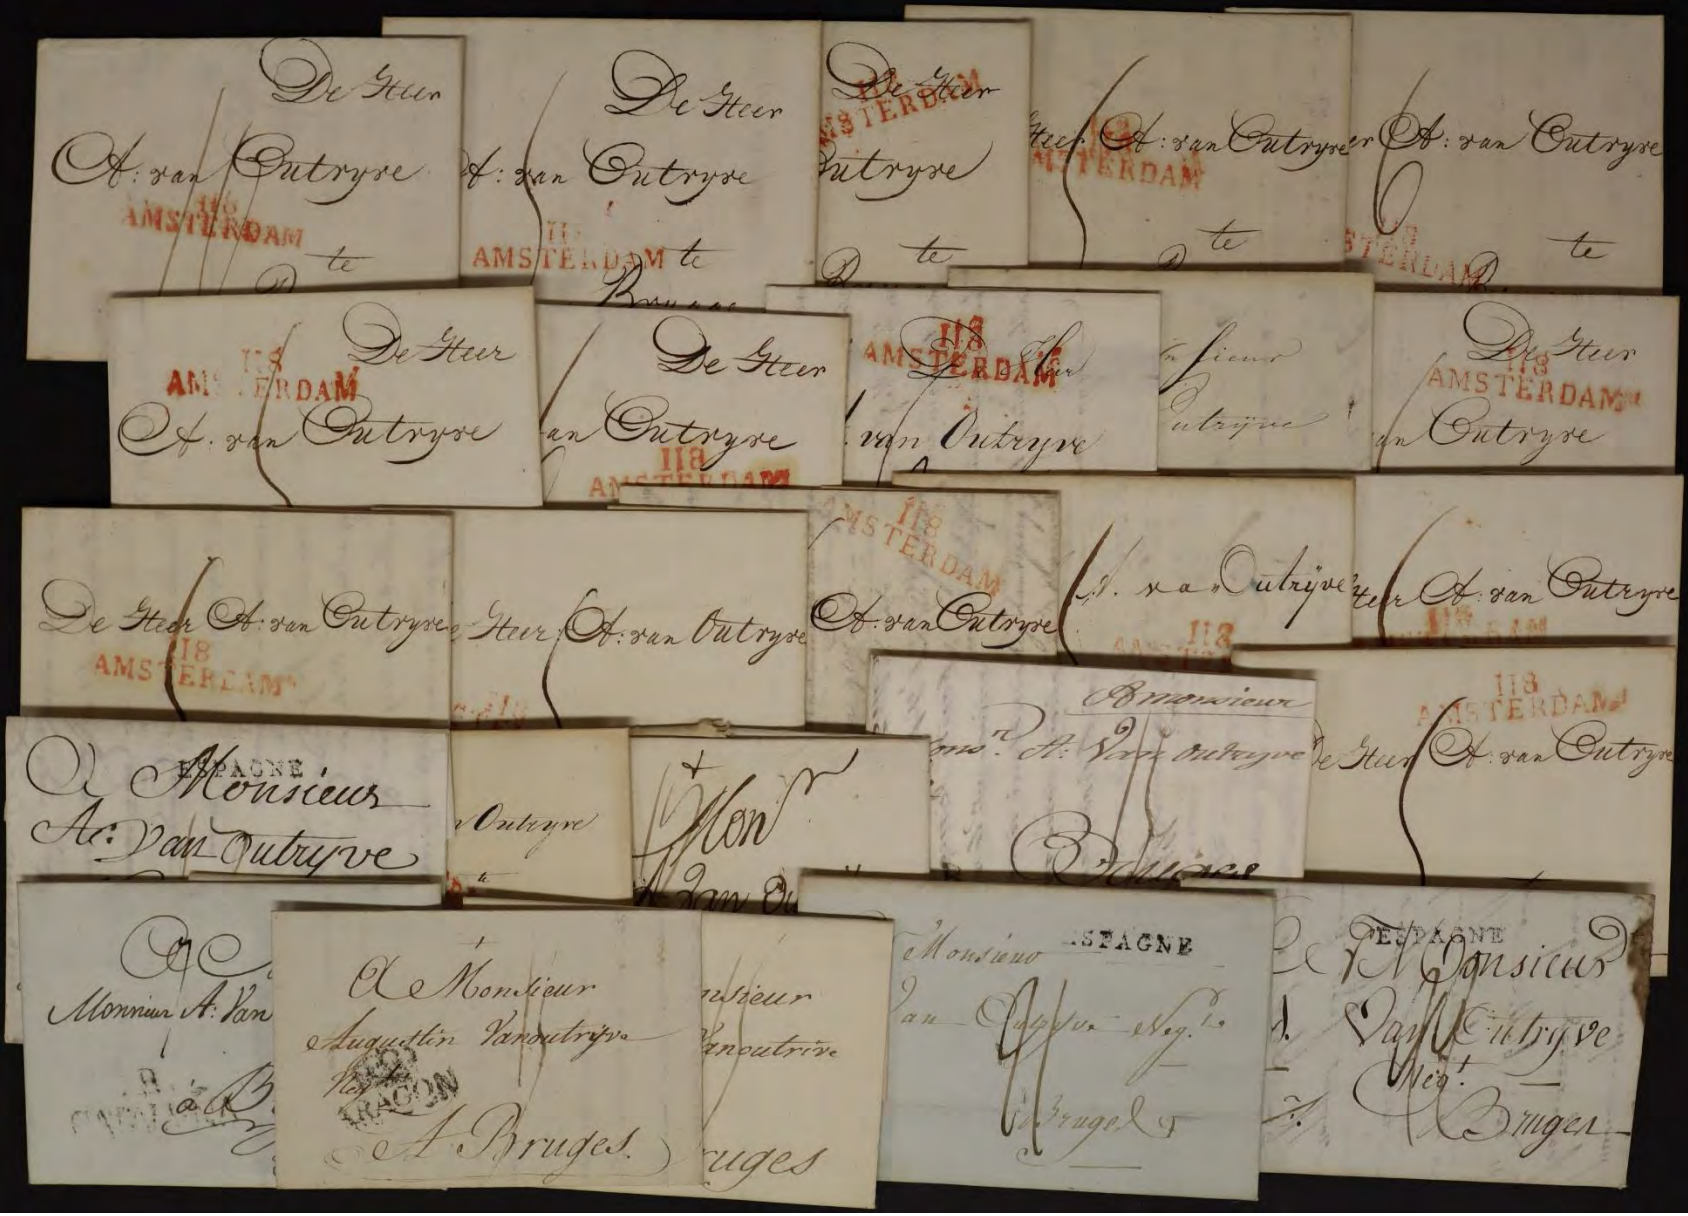 De Heer
A: van Outryve
118
AMSTERDAM
te
De Heer
A: van Outryve
AMSTERDAM te
De Heer
AMSTERDAM
Outryve
te
Heer A: van Outryve
118
AMSTERDAM
te
A: van Outryve
te
De Heer
118
AMSTERDAM
A: van Outryve
De Heer
an Outryve
118
AMSTERDAM
118
AMSTERDAM
van Outryve
sieur
utrijve
De Heer
118
AMSTERDAM
an Outryve
De Heer A: van Outryve
118
AMSTERDAM
Heer A: van Outryve
118
118
AMSTERDAM
A: van Outryve
van Outrijve
118
Heer A: van Outryve
118
AMSTERDAM
A Monsieur
Monsr. A: Van Outryve
Bruges
118
AMSTERDAM
De Heer A: van Outryve
ESPAGNE
A Monsieur
Van Outryve
Outryve
Monsr
Van Ou
Monsieur A: Van
à B
A Monsieur
Augustin Vanoutryve
ARAGON
A Bruges.
nsieur
Vanoutrive
ruges
ESPAGNE
Monsieur
Van Outryve Negt.
à Bruges
ESPAGNE
Monsieur
Van Outryve
Negt.
Bruges